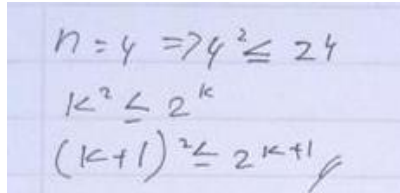 n = 4 => 4² ≤ 24
k² ≤ 2^k
(k+1)² ≤ 2^{k+1}